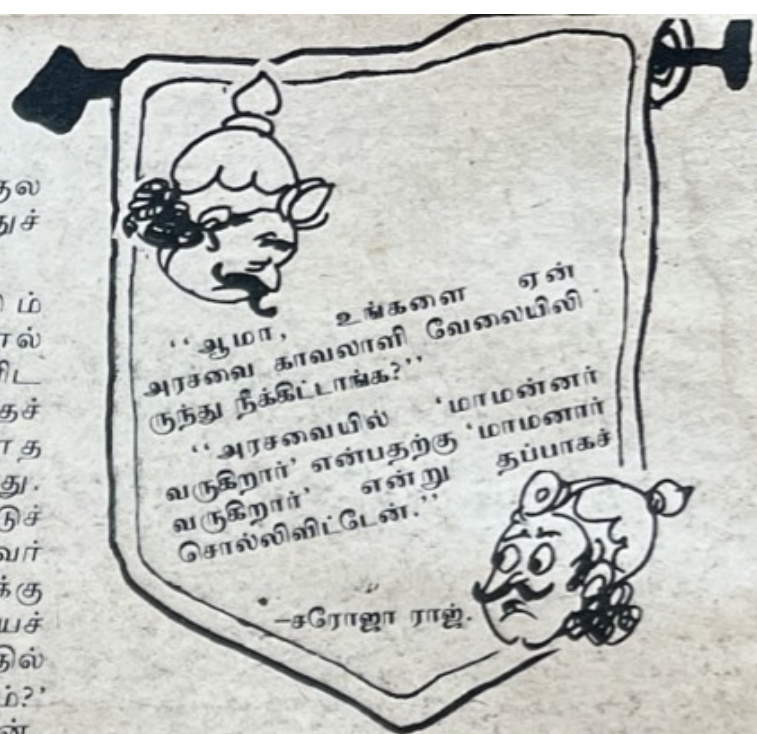 குல
துச்
ம்
ால்
ிட
தச்
ாத
து.
டுச்
வர்
க்கு
யச்
தில்
ம்?'
ன்
‘‘ஆமா, உங்களை ஏன்
அரசவை காவலாளி வேலையிலி
ருந்து நீக்கிட்டாங்க?’’
‘‘அரசவையில் ‘மாமன்னர்
வருகிறார்’ என்பதற்கு ‘மாமனார்
வருகிறார்’ என்று தப்பாகச்
சொல்லிவிட்டேன்.’’
–சரோஜா ராஜ்.